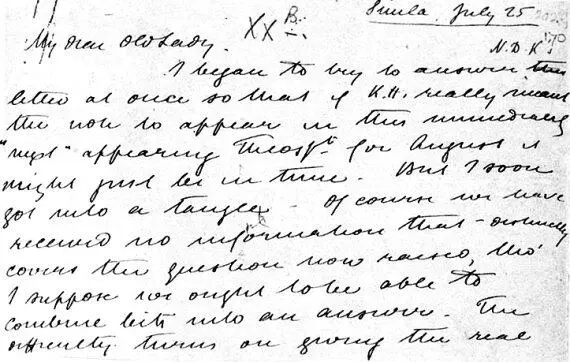 XX B.
Simla, July 25
My dear Old Lady,
N.D.K.
I began to try to answer this
letter at once so that if K.H. really meant
the note to appear in this immediately
"next" appearing Theosst. for August it
might just be in time. But I soon
got into a tangle - Of course we have
received no information that - distinctly
covers the question now raised, tho'
I suppose we ought to be able to
combine bits into an answer. The
difficulty turns on giving the real